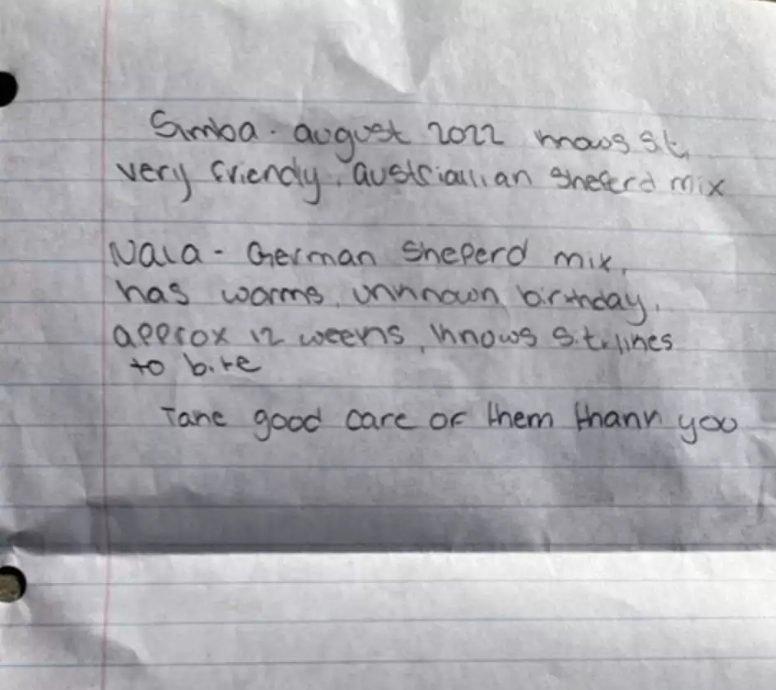 Simba - august 2022 knows sit,
very friendly, austriallian sheferd mix
Nala - German Sheperd mix,
has worms, unknown birthday,
approx 12 weeks, knows sit, likes
to bite
Take good care of them thank you